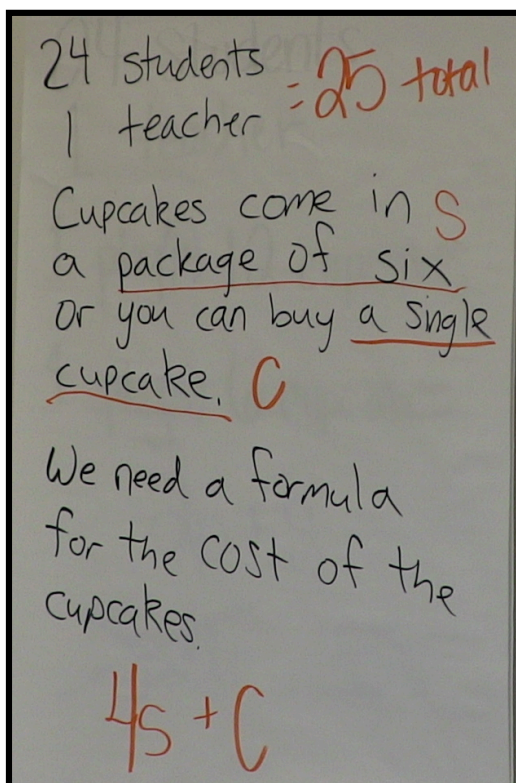 24 students
1 teacher = 25 total
Cupcakes come in S
a package of six
or you can buy a single
cupcake. C
We need a formula
for the cost of the
cupcakes.
4s + C